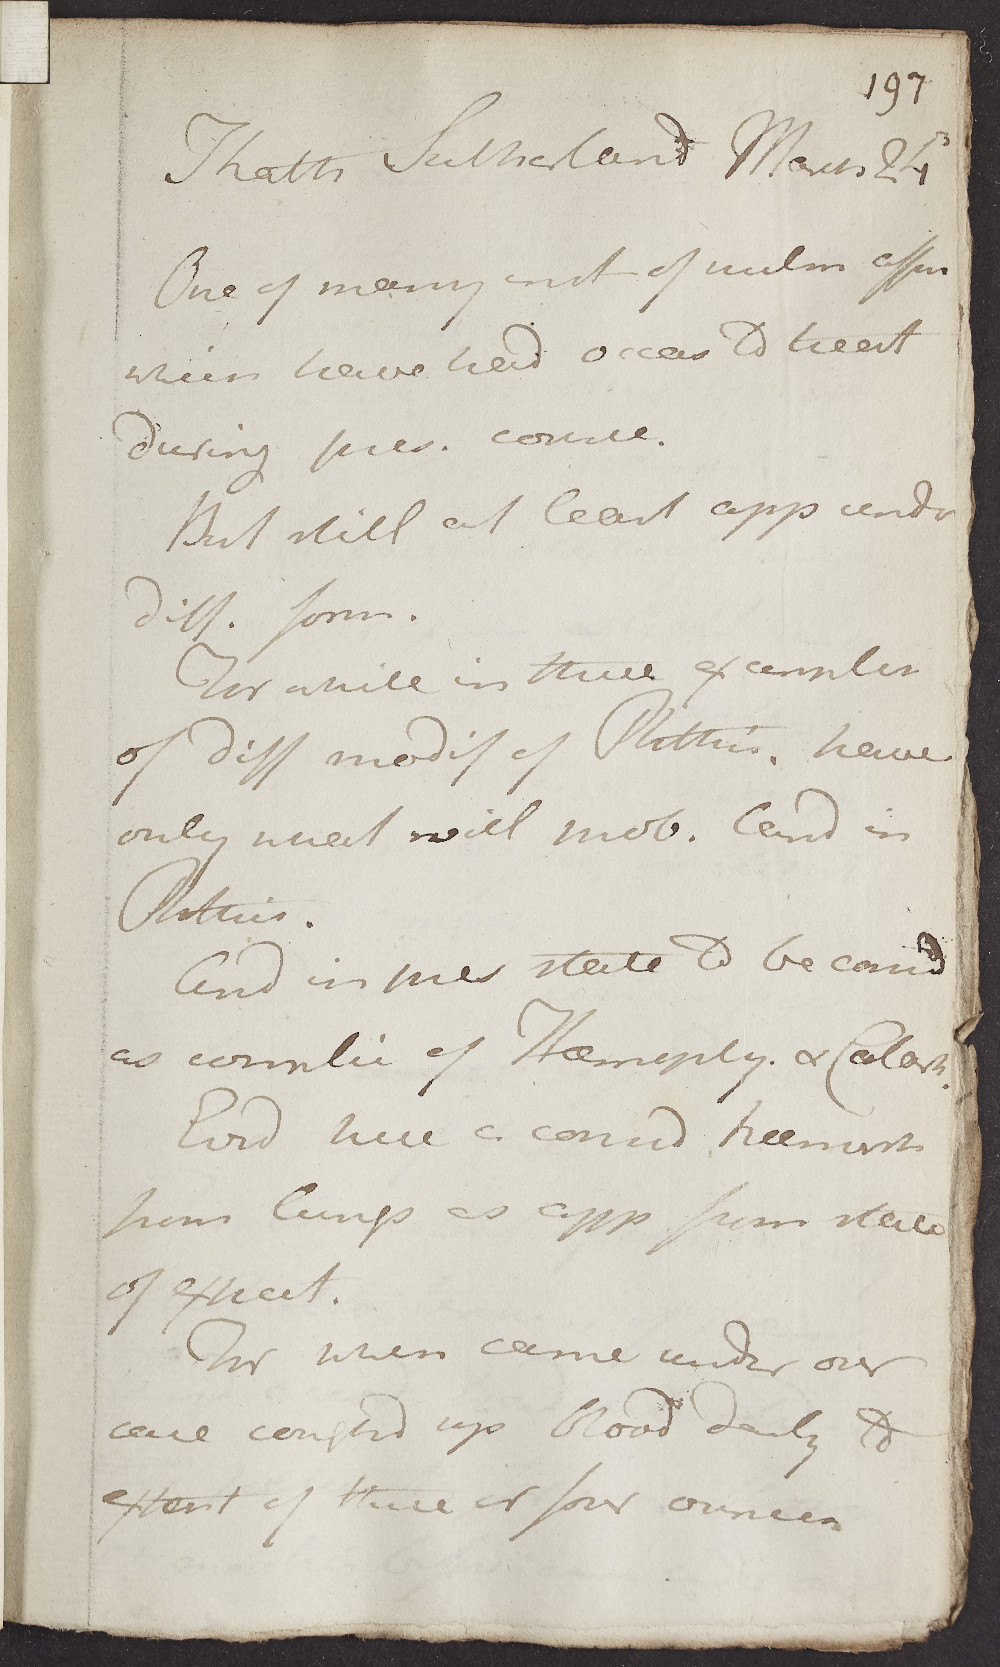 197
Kath Sutherland March 24
One of many inst of pulm affn
which have had occas to treat
during pres. course.
But still at least app undr
diff. form.
For while in three examples
of diff modif of Phthis. have
only met with prob. and in
Phthis.
And in pres state to be consd
as complic of Hæmopty. & Catarh.
Evid here a considd hæmorh
from lungs as app from state
of expect.
For when came under our
care coughd up blood daily to
extent of three or four ounces